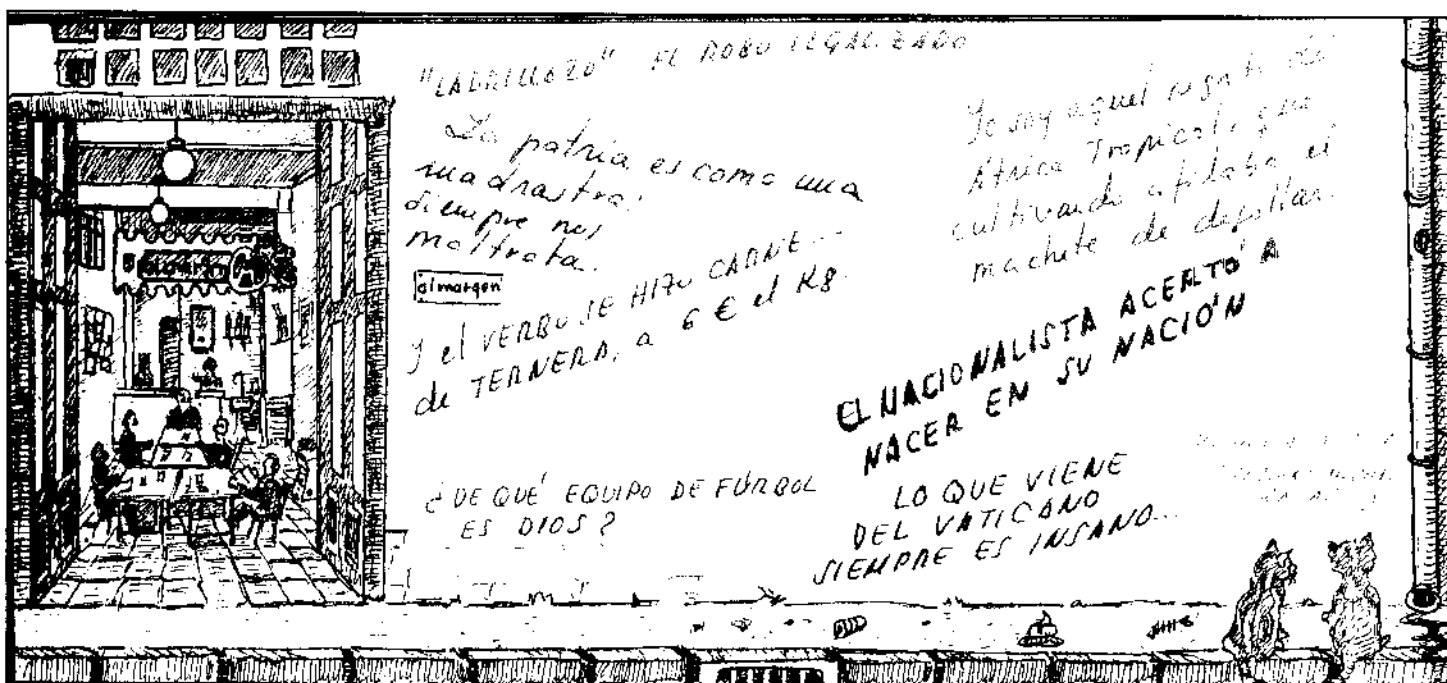 "LADRILLAZO" EL ROBO LEGALIZADO
La patria es como una
madrastra:
siempre nos
maltrata.
almargen
Y el VERBO SE HIZO CARNE...
de TERNERA, a 6 € el Kg.
Yo soy aquel negrito del
África Tropical, que
cultivando afilaba el
machete de depilar.
EL NACIONALISTA ACERTÓ A
NACER EN SU NACIÓN
¿DE QUÉ EQUIPO DE FÚRBOL
ES DIOS?
LO QUE VIENE
DEL VATICANO
SIEMPRE ES INSANO...